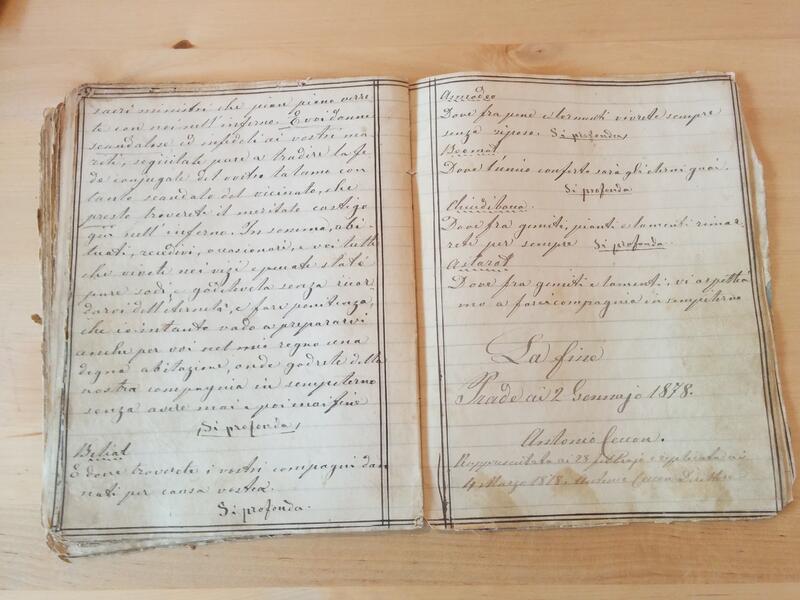 sacri ministri che pian piano verre
te con noi nell'inferno. E voi donne
scandalose ed infedeli ai vostri ma
riti, seguitate pure a tradire la fe
de conjugale del vostro talamo con
tanto scandalo del vicinato, che
presto troverete il meritato castigo
qui nell'inferno. In somma, abi
tuati, recidivi, occasionari, e voi tutti
che vivete nei vizi e peccati state
pure sodi, e godetevela senza ricor
darvi dell'eternità, e fare penitenza,
che io intanto vado a prepararvi
anche per voi nel mio regno una
degna abitazione, onde godrete della
nostra compagnia in sempiterno
senza avere mai e poi mai fine
Si profonda
Beliat
E dove troverete i vostri compagni dan
nati per causa vostra.
Si profonda.
Asmodeo
Dove fra pene e tormenti vivrete sempre
senza riposo. Si profonda
Beemot
Dove l'unico conforto sarà gli eterni guai.
Si profonda
Dove fra gemiti, pianti e lamenti rimar
rete per sempre Si profonda
Astarot
Dove fra gemiti e lamenti, vi aspettia
mo a fare compagnia in sempiterno
La fine
Prade ai 2 Gennajo 1878.
Antonio Ceccon.
Rappresentata ai 28 febbrajo e replicata ai
4 Marzo 1878. Antonio Ceccon